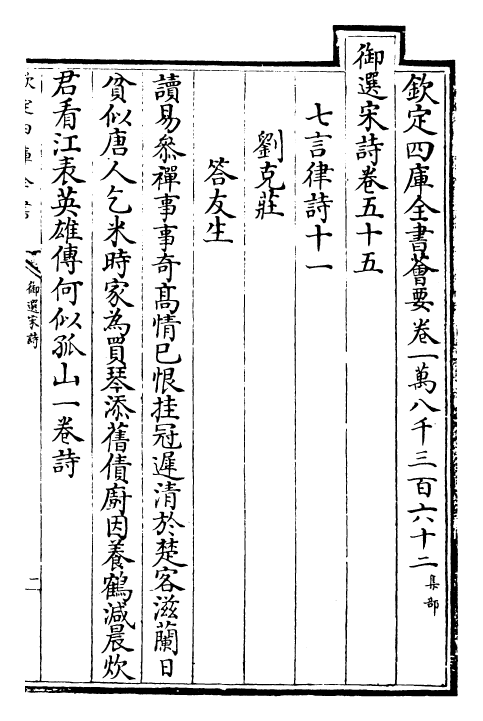 欽定四庫全書薈要卷一萬八千三百六十二 集部
御選宋詩卷五十五
七言律詩十一
劉克莊
答友生
讀易參禪事事奇高情已恨挂冠遲清於楚客滋蘭日
貧似唐人乞米時家為買琴添舊債廚因養鶴減晨炊
君看江表英雄傳何似孤山一卷詩
欽定四庫全書
御選宋詩